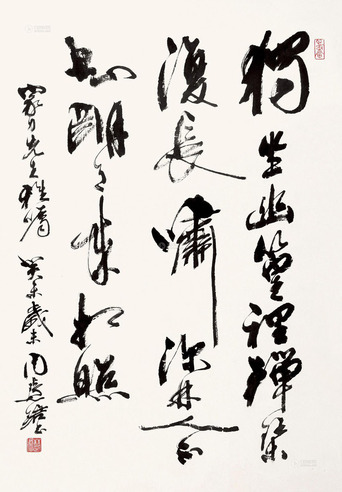 獨坐幽篁裡彈琴
復長嘯深林人不
知明月來相照
先生雅嘱 癸未歲末周慧珺